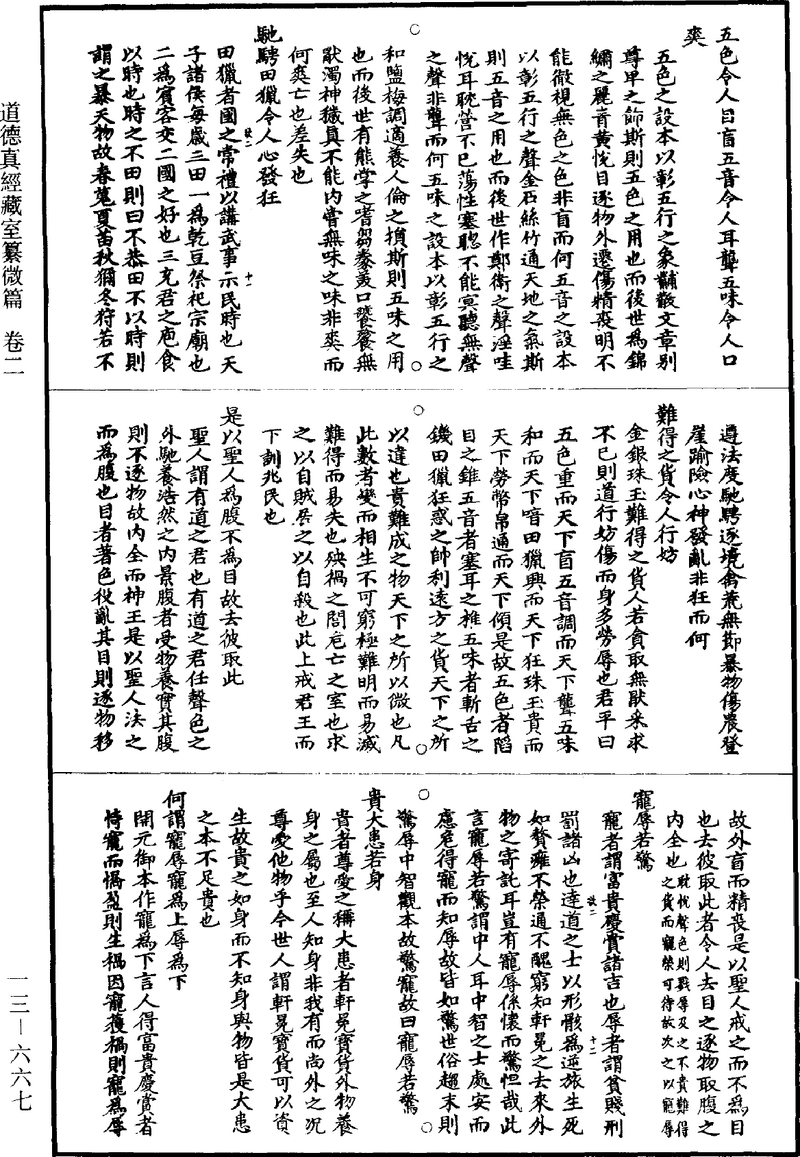 五色令人目盲五音令人耳聾五味令人口
爽
五色之設本以彰五行之象黼黻文章別
尊卑之飾斯則五色之用也而後世為錦
繡之麗青黃悅目逐物外遷傷精喪明不
能微視無色之色非盲而何五音之設本
以彰五行之聲金石絲竹通天地之氣斯
則五音之用也而後世作鄭衛之聲淫哇
悅耳耽營不已蕩性塞聰不能冥聽無聲
之聲非聾而何五味之設本以彰五行之
和鹽梅調適養人倫之損斯則五味之用
也而後世有熊掌之嗜芻豢羨口饕餮無
猒濁神穢真不能內嘗無味之味非爽而
何爽亡也差失也
馳騁田獵令人心發狂
田獵者國之常禮以講武事示民時也天
子諸侯每歲三田一為乾豆祭祀宗廟也
二為賓客交二國之好也三充君之庖食
以時也時之不田則曰不恭田不以時則
謂之暴天物故春蒐夏苗秋獮冬狩若不
遵法度馳騁逐境禽荒無節暴物傷農登
崖踰險心神發亂非狂而何
難得之貨令人行妨
金銀珠玉難得之貨人若貪取無猒釆求
不已則道行妨傷而身多勞辱也君平曰
五色重而天下盲五音調而天下聾五味
和而天下喑田獵興而天下狂珠玉貴而
天下勞幣帛通而天下傾是故五色者陷
目之錐五音者塞耳之椎五味者斬舌之
鐖田獵狂惑之帥利遠方之貨天下之所
以違也貴難成之物天下之所以微也凡
此數者變而相生不可窮極難明而易滅
難得而易失也殃禍之閭危亡之室也求
之以自賊居之以自殺也此上戒君王而
下訓兆民也
是以聖人為腹不為目故去彼取此
聖人謂有道之君也有道之君任聲色之
外馳養浩然之內景腹者受物養實其腹
則不逐物故內全而神王是以聖人法之
而為腹也目者著色役亂其目則逐物移
故外盲而精喪是以聖人戒之而不為目
也去彼取此者令人去目之逐物取腹之
內全也耽悅聲色則戮辱及之不貴難得之貨而寵榮可待故次之以寵辱
寵辱若驚
寵者謂富貴慶賞諸吉也辱者謂貧賤刑
罰諸凶也達道之士以形骸為逆旅生死
如贅癰不榮通不醜窮知軒冕之去來外
物之寄託耳豈有寵辱係懷而驚怛哉此
言寵辱若驚謂中人耳中智之士處安而
慮危得寵而知辱故皆如驚世俗趨末則
驚辱中智觀本故驚寵故曰寵辱若驚
貴大患若身
貴者尊愛之稱大患者軒冕寶貨外物養
身之屬也至人知身非我有而尚外之況
尊愛他物乎今世人謂軒冕寶貨可以資
生故貴之如身而不知身與物皆是大患
之本不足貴也
何謂寵辱寵為上辱為下
開元御本作寵為下言人得富貴慶賞者
恃寵而憍盈則生禍因寵獲禍則寵為辱
道德真經藏室纂微篇 卷二
一三－六六七